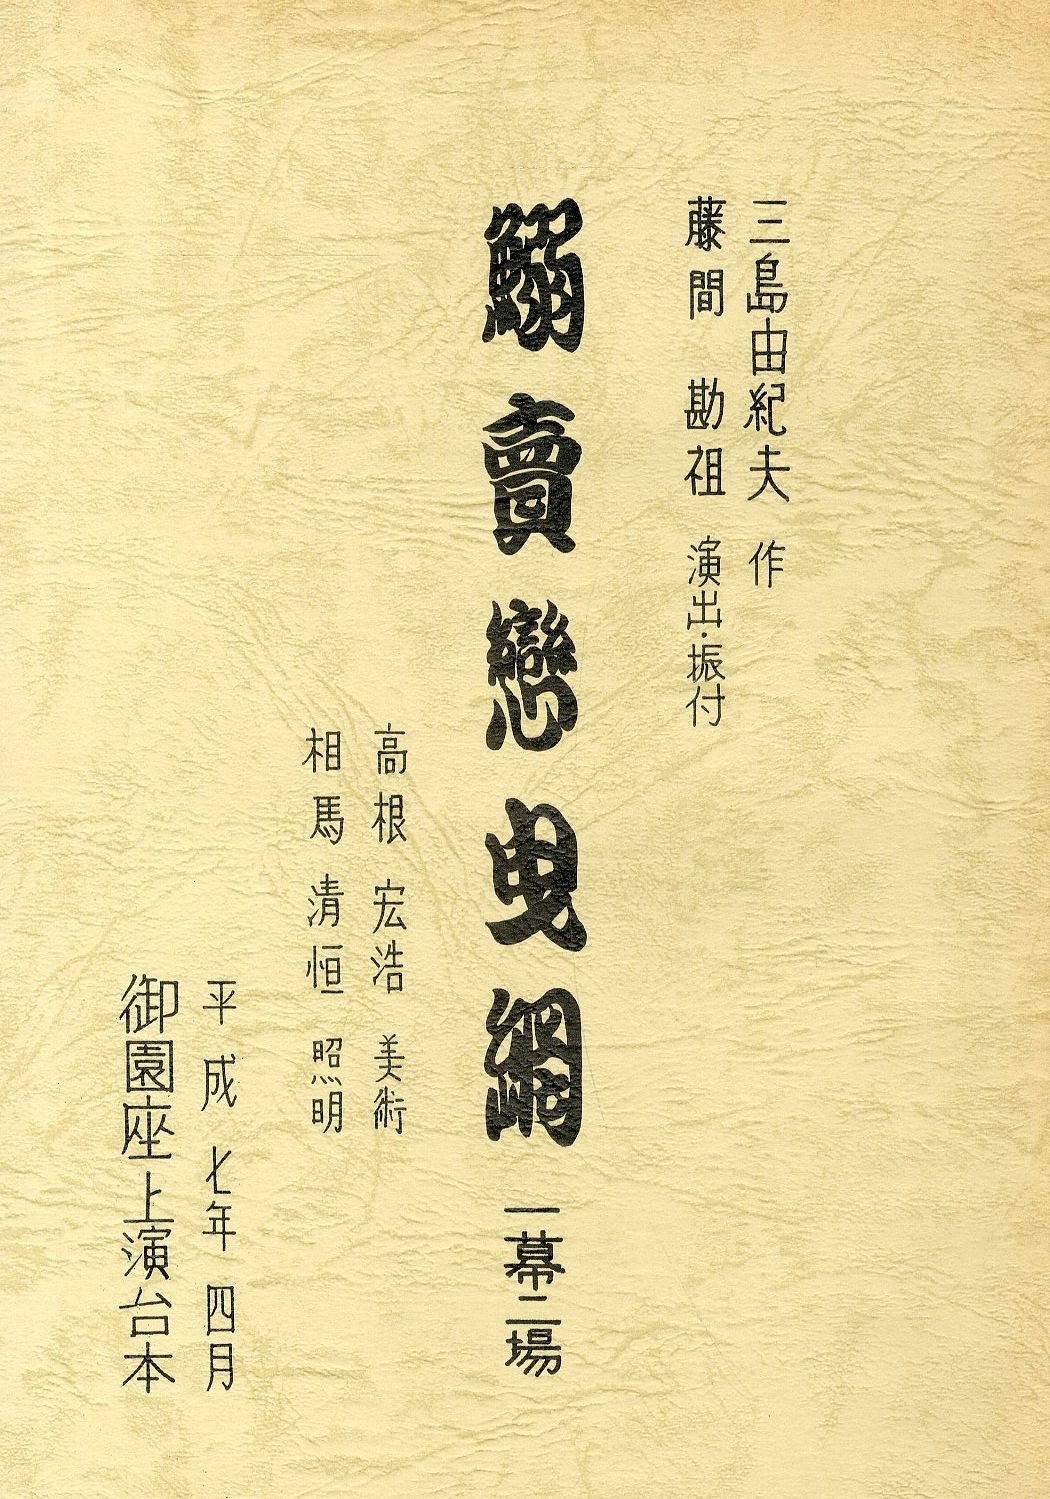 三島由紀夫 作
藤間 勘祖 演出・振付
鰯賣戀曳網 一幕二場
高根 宏浩 美術
相馬 清恒 照明
平成 七年 四月
御園座上演台本